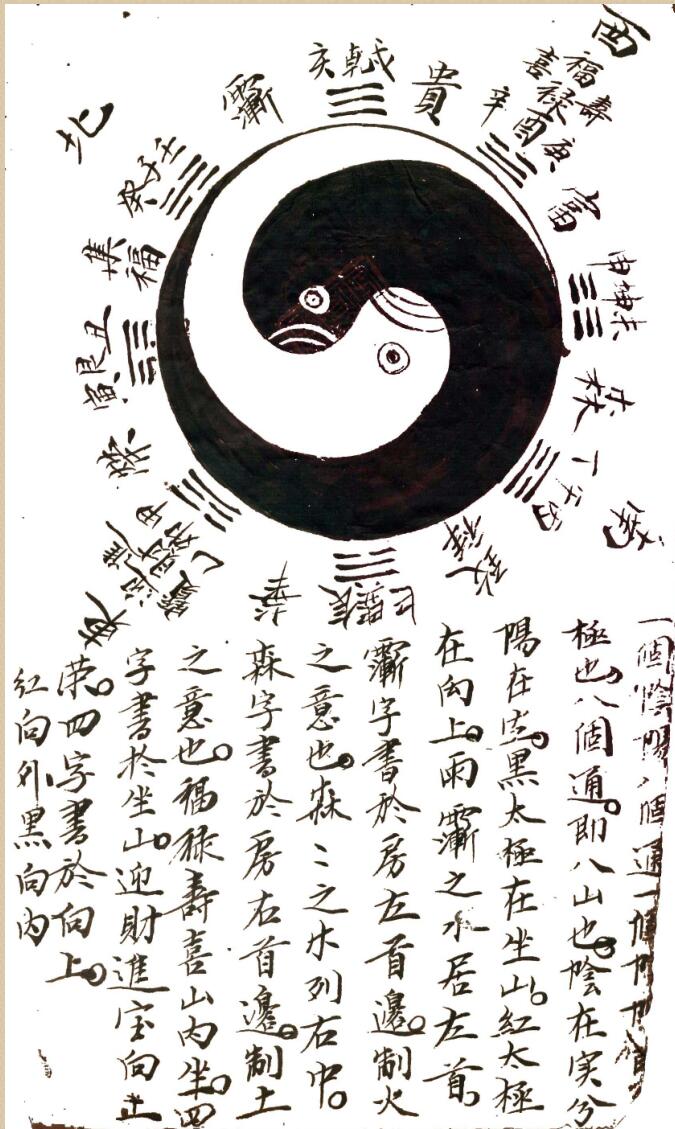 西
福 壽
喜 禄
辛 酉 庚
貴
亥 乾 戌
北
壬
子
癸
富
申 坤 未
福
丑
艮
寅
丁
甲
一個陰陽八個通一個
極也。八個通。即八山也。陰在実兮
陽在空。黑太極在坐山。紅太極
在向上。雨之水居左首。
字書於房左首邊。制火
之意也。森〻之木列右中。
森字書於房右首邊。制土
之意也。福禄壽喜山内坐。四
字書於坐山。迎財進宝向上
荣。四字書於向上。
紅向外黑向内